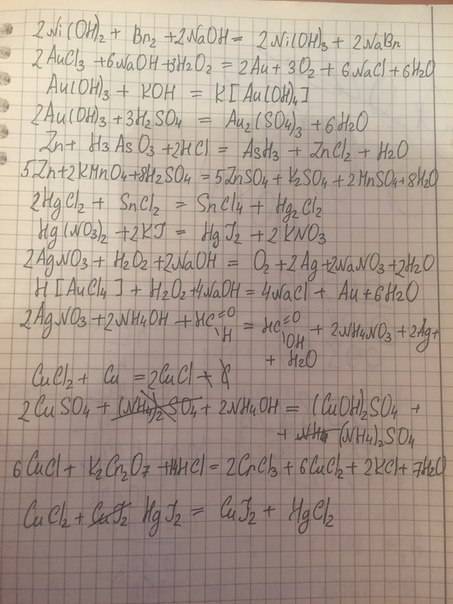 2Ni(OH)2 + Br2 + 2NaOH = 2Ni(OH)3 + 2NaBr
2AuCl3 + 6NaOH + 3H2O2 = 2Au + 3O2 + 6NaCl + 6H2O
Au(OH)3 + KOH = K[Au(OH)4]
2Au(OH)3 + 3H2SO4 = Au2(SO4)3 + 6H2O
Zn + H3AsO3 + 2HCl = AsH3 + ZnCl2 + H2O
5Zn + 2KMnO4 + 8H2SO4 = 5ZnSO4 + K2SO4 + 2MnSO4 + 8H2O
2HgCl2 + SnCl2 = SnCl4 + Hg2Cl2
Hg(NO3)2 + 2KJ = HgJ2 + 2KNO3
2AgNO3 + H2O2 + 2NaOH = O2 + 2Ag + 2NaNO3 + 2H2O
H[AuCl4] + H2O2 + 4NaOH = 4NaCl + Au + 6H2O
2AgNO3 + 2NH4OH + HC=O\H = HC=O\OH + 2NH4NO3 + 2Ag +
+ H2O
CuCl2 + Cu = 2CuCl
2CuSO4 + (NH4)2SO4 + 2NH4OH = (CuOH)2SO4 +
+ NH4 (NH4)2SO4
6CuCl + K2Cr2O7 + HCl = 2CrCl3 + 6CuCl2 + 2KCl + 7H2O
CuCl2 + CuJ2 HgJ2 = CuJ2 + HgCl2